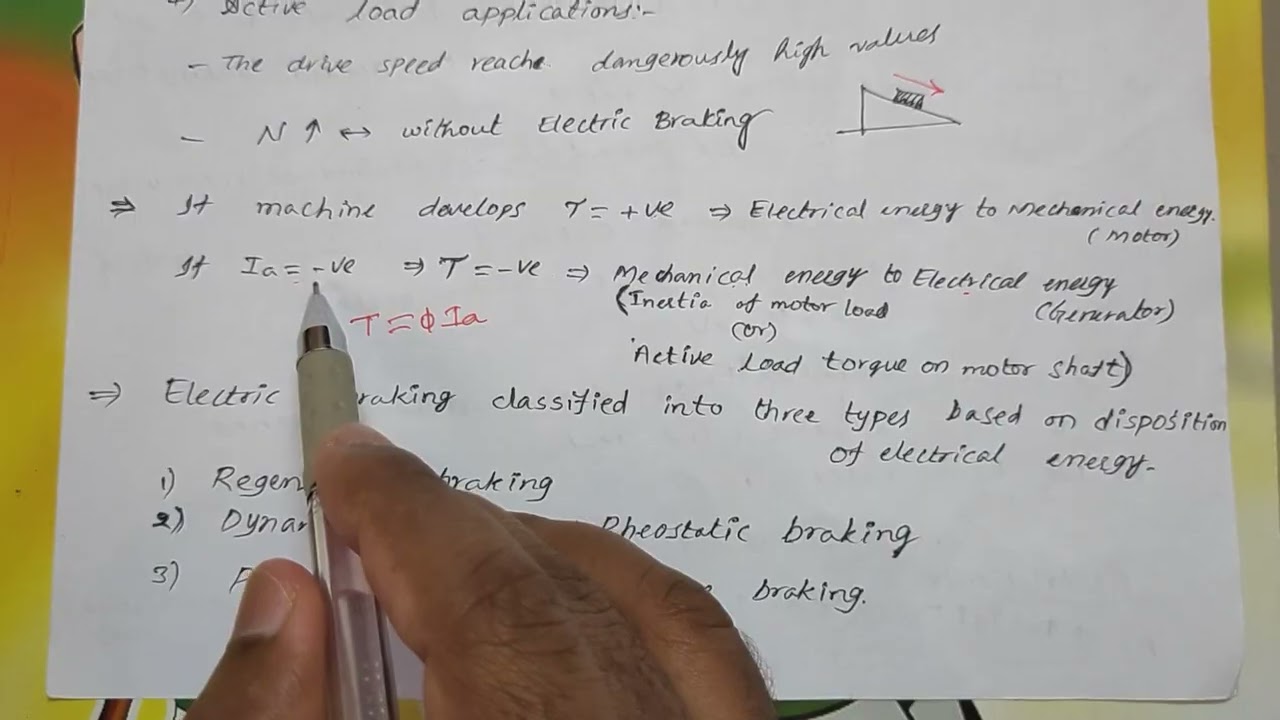 4) Active load applications:-
- The drive speed reache dangerously high values
- N ↑ ↔ without Electric Braking
⇒ If machine develops T = +ve ⇒ Electrical energy to Mechanical energy.
(Motor)
If Ia = -ve ⇒ T = -ve ⇒ Mechanical energy to Electrical energy
(Inertia of motor load (Generator)
T = ϕ Ia (or)
Active load torque on motor shaft)
⇒ Electric raking classified into three types based on disposition
of electrical energy-
1) Regen braking
2) Dynam Rheostatic braking
3) braking.